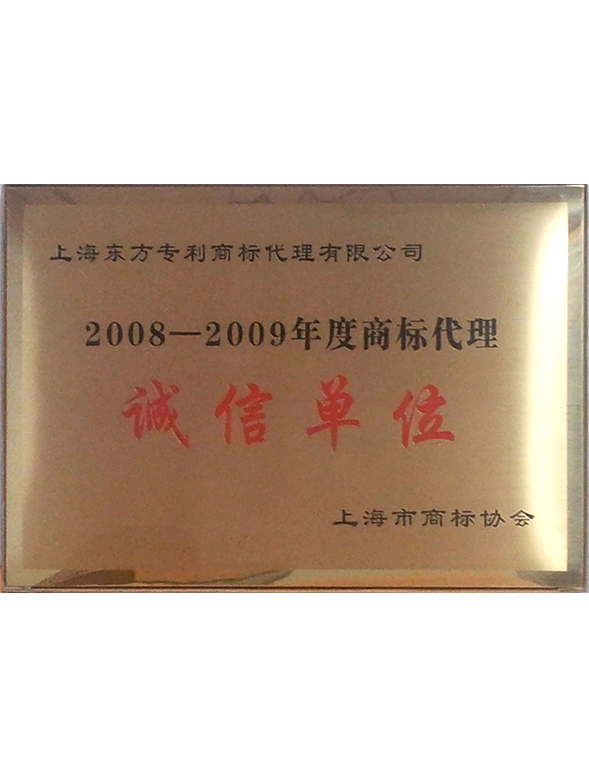 上海东方专利商标代理有限公司
2008—2009年度商标代理
诚信单位
上海市商标协会